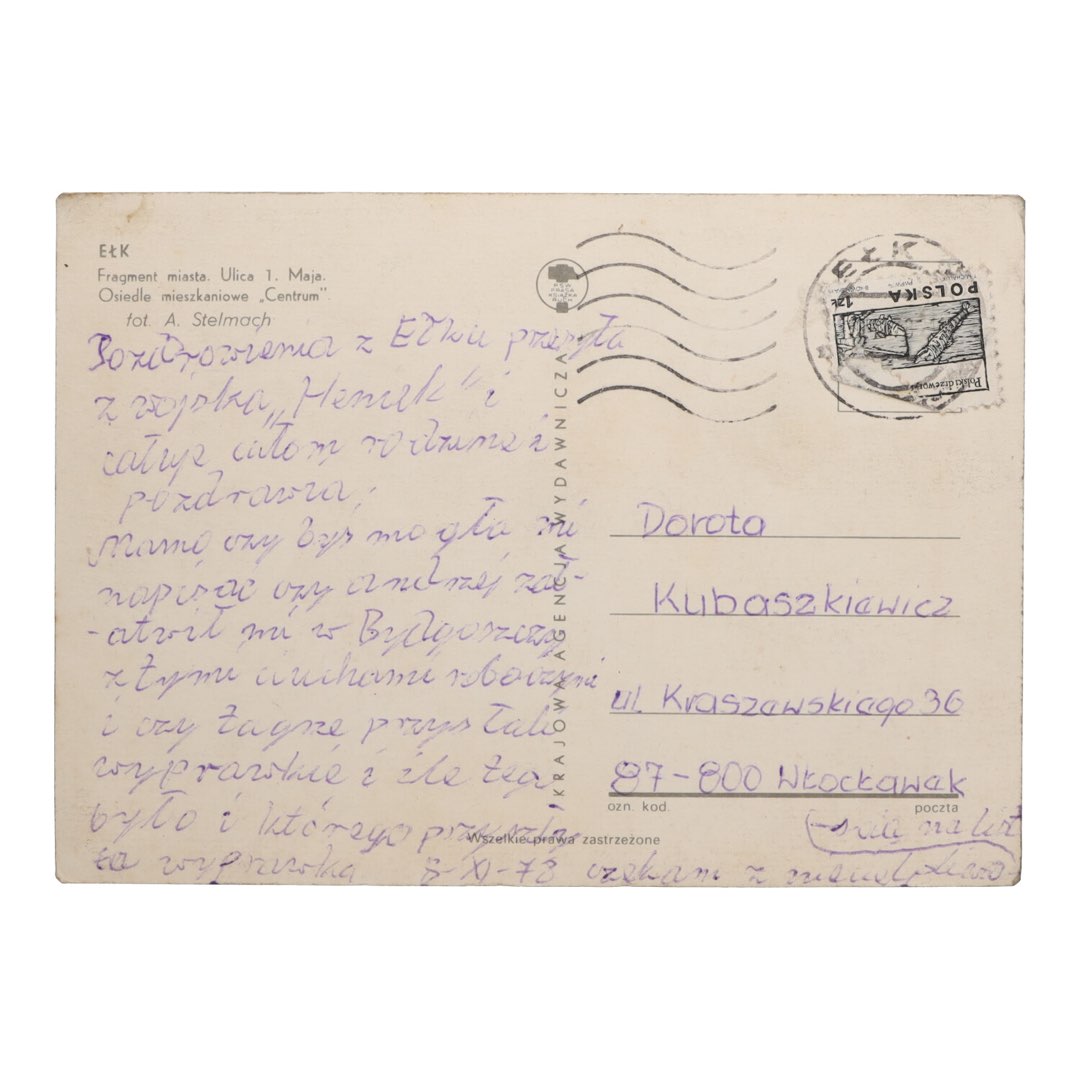 EŁK
Fragment miasta. Ulica 1. Maja.
Osiedle mieszkaniowe „Centrum".
fot. A. Stelmach
Pozdrowienia z Ełku przesyła
z wojska „Heniek" i
całuje całom rodzine i
pozdrawia,
Mamo czy byś mogła mi
napisac czy andrzej zał-
-atwił mi w Bydgoszczy
z tymi ciuchami roboczymi
i czy
wyprawkie i ile tego
było i którego przyszła
ta wyprawka 8-XI-78 czekam z niecierpliwo
-scia na list
KRAJOWA AGENCJA WYDAWNICZA
RSW
PRASA
KSIĄŻKA
RUCH
EŁK
POLSKA
1ZŁ
Polski drzeworyt
Dorota
Kubaszkiewicz
ul. Kraszewskiego 36
87-800 Włocławek
ozn. kod. poczta
Wszelkie prawa zastrzeżone